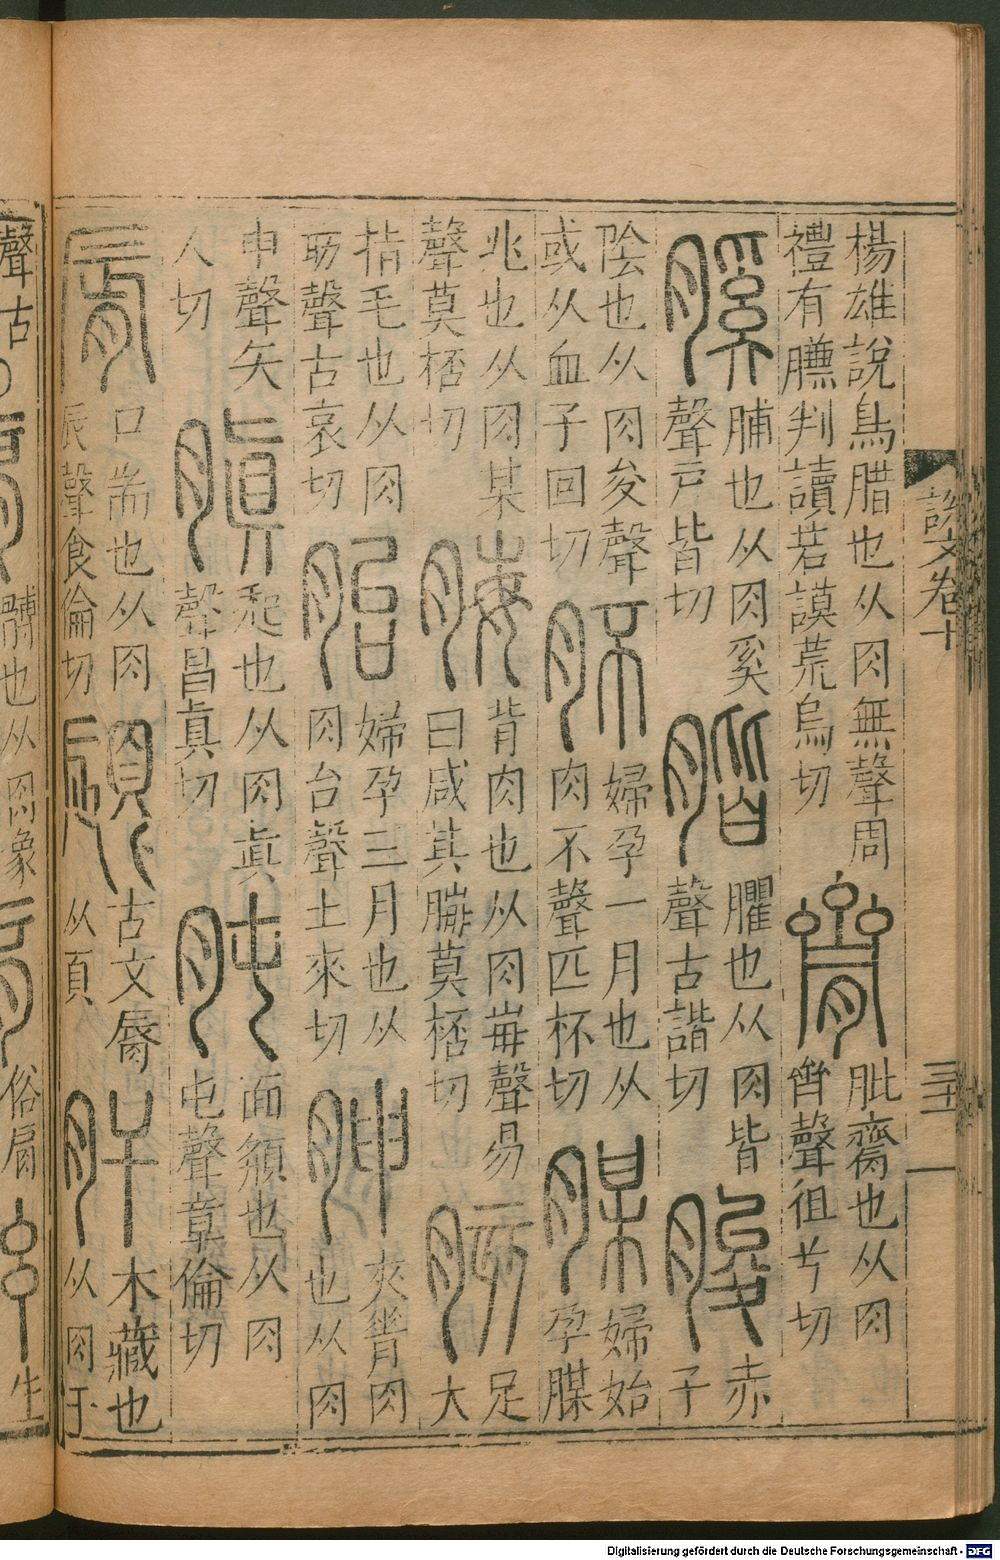 說文卷十
三十一
楊雄說鳥腊也从肉無聲周
禮有膴判讀若謨荒烏切
臍
肶齎也从肉
𪗉聲徂兮切
膎
脯也从肉奚
聲戶皆切
臞也从肉皆
聲古諧切
朘
赤
子
陰也从肉夋聲
或从血子回切
肧
婦孕一月也从
肉不聲匹杯切
腜
婦始
孕腜
兆也从肉某
聲莫桮切
脢
背肉也从肉每聲易
曰咸其脢莫桮切
胲
足
大
指毛也从肉
亥聲古哀切
胎
婦孕三月也从
肉台聲土來切
胂
夾脊肉
也从肉
申聲矢
人切
䐜
起也从肉真
聲昌真切
肫
面頯也从肉
屯聲章倫切
脣
口耑也从肉
辰聲食倫切
古文脣
从頁
肝
木藏也
从肉干
聲古
髆也从肉象
俗肩
生
Digitalisierung gefördert durch die Deutsche Forschungsgemeinschaft - DFG